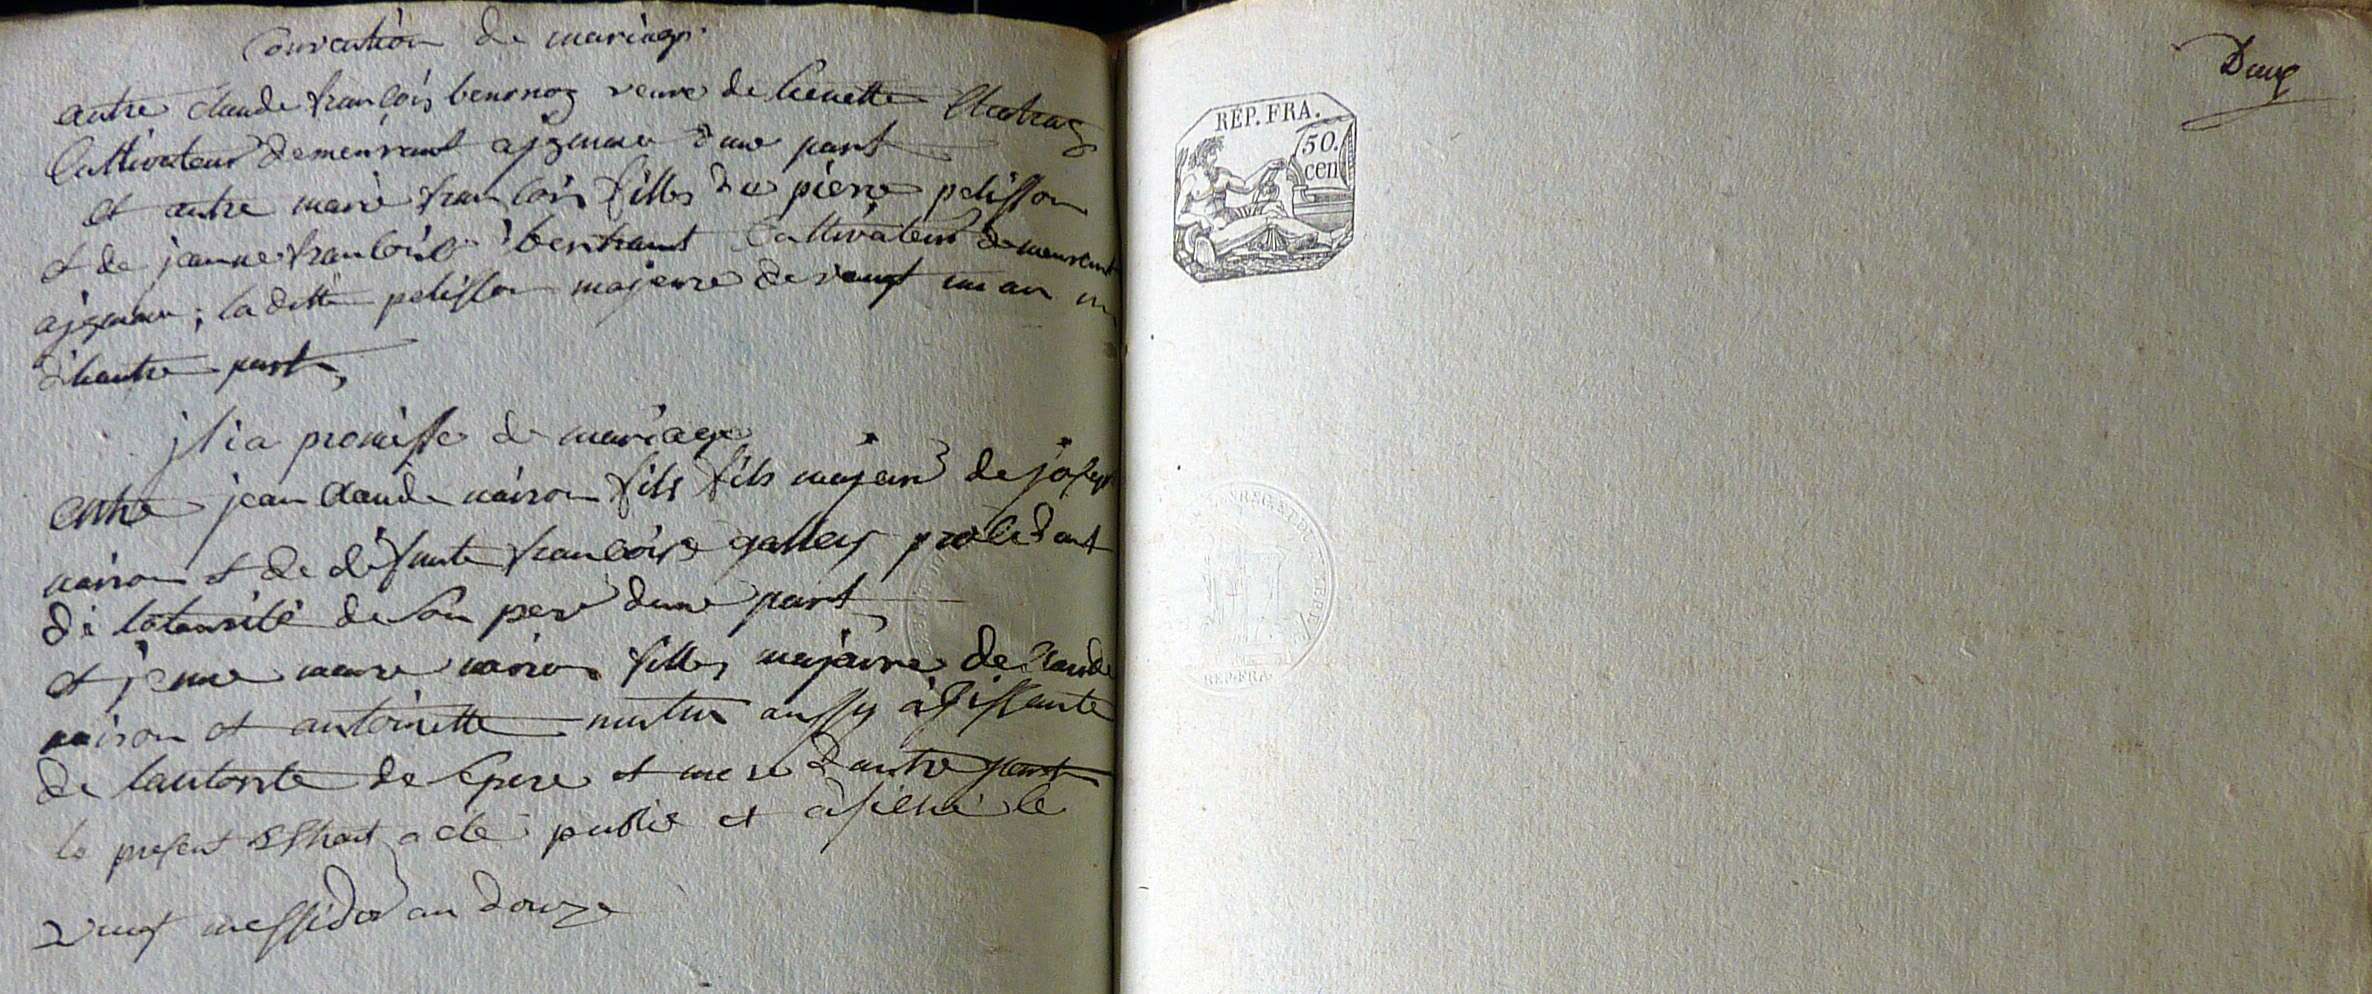 Convention de mariage
entre claude francois bennoz veuve de
Cultivateur demeurant a d'une part
et entre marie francois filles de pierre pelisson
et de jeanne francoise bertrant Cultivateur demeurant
la ditte pelisson majeure de vingt un an
d'hautre part
jl i a promisse de mariage
entre jean claude fils fils majeur de joseph
et de défunte francoise gallay procedant
de lotaurité de son pere dune part
et filles majeure de claude
et antoinette aussy
de lautorite de pere et mere d'autre part
le present a été publié et afiché le
vingt messidor an douze
Deux
RÉP. FRA.
50.
cen
RÉP. FRA.